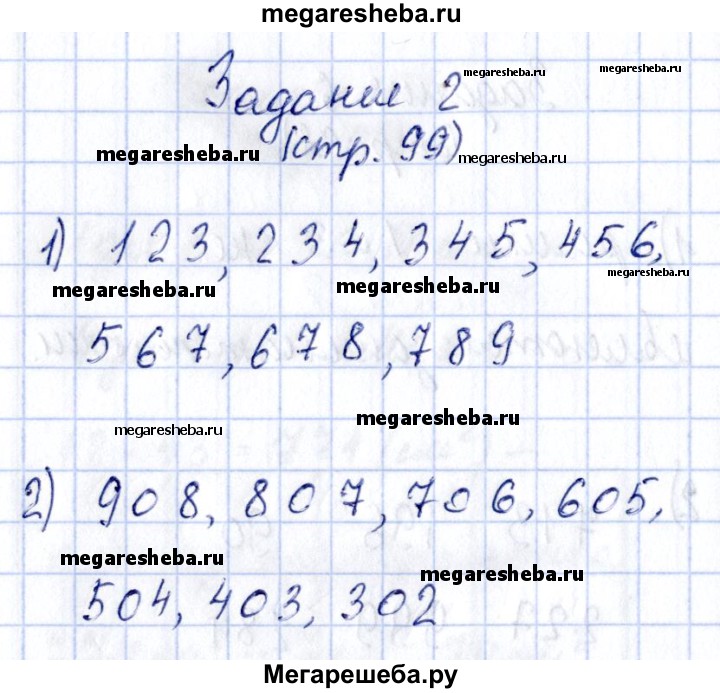 megaresheba.ru
Задание 2
megaresheba.ru
megaresheba.ru
(стр. 99)
megaresheba.ru
megaresheba.ru
1) 123, 234, 345, 456,
megaresheba.ru
megaresheba.ru
megaresheba.ru
567, 678, 789
megaresheba.ru
megaresheba.ru
2) 908, 807, 706, 605,
megaresheba.ru
megaresheba.ru
504, 403, 302
Мегарешеба.ру